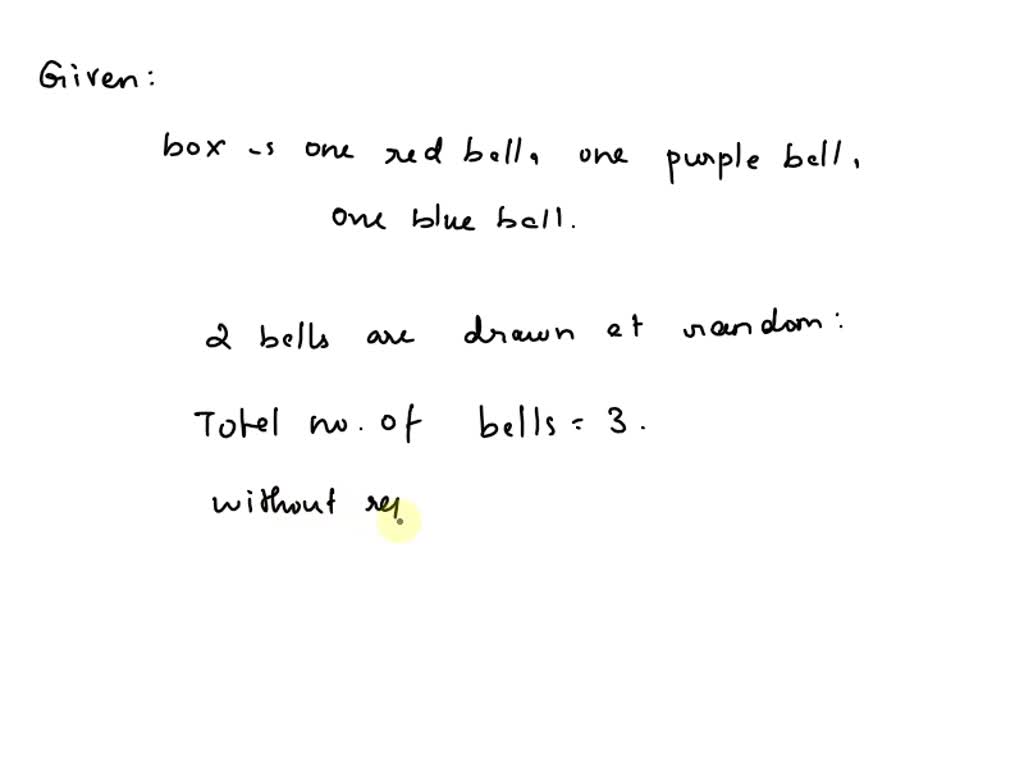 Given:
box → one red ball, one purple ball,
one blue ball.
2 balls are drawn at random:
Total no. of balls = 3.
without rep